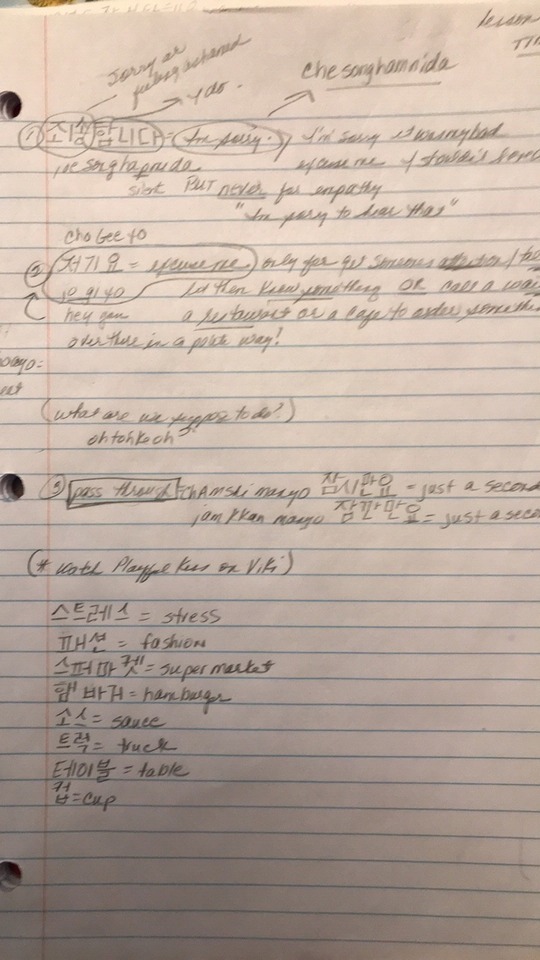 lesson
Sorry or
feeling ashamed
→ I do.
Chesonghamnida
① 조심합니다 = I'm sorry. I'm sorry it was my bad
joe songhapnida excuse me / towards
silent BUT never for empathy
"I'm sorry to hear that"
cho Gee yo
② 저기요 = excuse me only for get someones attention /
jo gi yo let them know something OR call a
hey you a restaurant or a cafe to order
over there in a polite way!
(what are we suppose to do?)
ohtohkeoh
③ pass through ThAmshi manyo 잠시만요 = just a second
jam kkan manyo 잠깐만요 = just a
(* watch Playful Kiss on Viki)
스트레스 = stress
패션 = fashion
스퍼마켓 = supermarket
햄바거 = hamburger
소스 = sauce
트럭 = truck
테이블 = table
컵 = cup